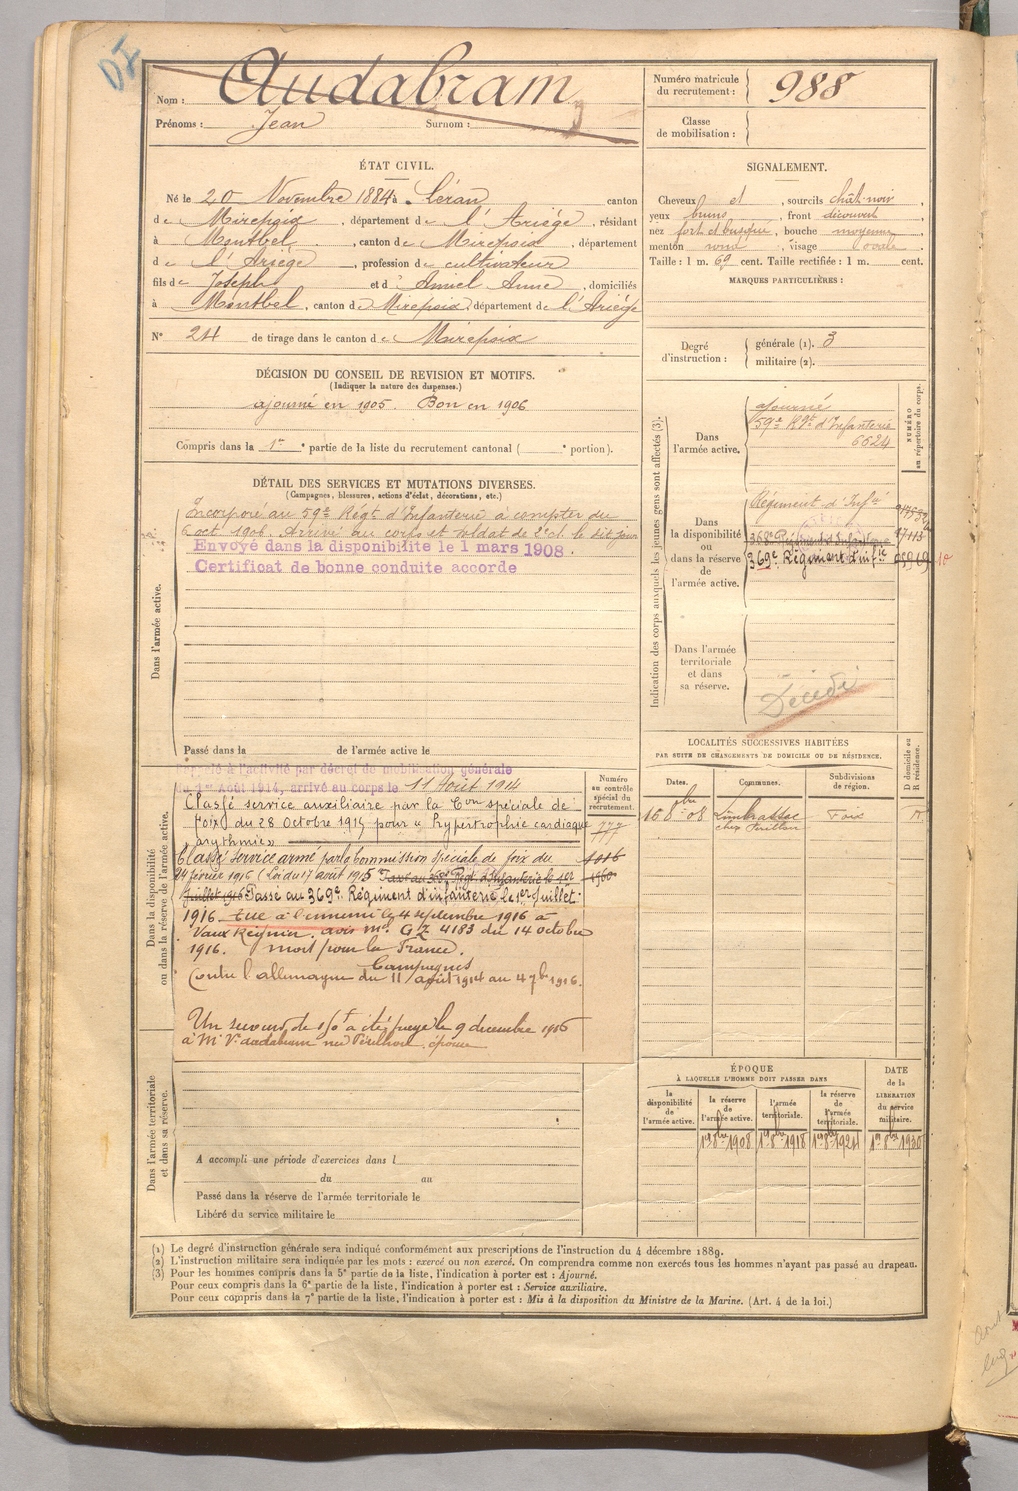 Nom : Audabram
Prénoms : Jean Surnom :
Numéro matricule du recrutement : 988
Classe de mobilisation :
ÉTAT CIVIL.
Né le 20 Novembre 1884 à Léran canton
de Mirepoix, département de l'Ariège, résidant
à Montbel, canton de Mirepoix, département
de l'Ariège, profession de cultivateur
fils de Joseph et d' Amiel Anne, domiciliés
à Montbel, canton de Mirepoix, département de l'Ariège
N° 24 de tirage dans le canton de Mirepoix
SIGNALEMENT.
Cheveux et, sourcils chât-noir
yeux bruns, front découvert
nez fort et busqué, bouche moyenne
menton rond, visage ovale
Taille : 1 m. 69 cent. Taille rectifiée : 1 m. cent.
MARQUES PARTICULIÈRES :
Degré d'instruction :
générale (1). 3
militaire (2).
DÉCISION DU CONSEIL DE REVISION ET MOTIFS.
(Indiquer la nature des dispenses.)
ajourné en 1905. Bon en 1906
Compris dans la 1re partie de la liste du recrutement cantonal ( e portion).
Indication des corps auxquels les jeunes gens sont affectés (3).
NUMÉRO au répertoire du corps.
Dans l'armée active.
ajourné
59e Rgt d'Infanterie
6624
Dans la disponibilité ou dans la réserve de l'armée active.
Régiment d'Infie
368e Régiment d'Infanterie
17113
369e Régiment d'infie
Dans l'armée territoriale et dans sa réserve.
Décédé
DÉTAIL DES SERVICES ET MUTATIONS DIVERSES.
(Campagnes, blessures, actions d'éclat, décorations, etc.)
Dans l'armée active.
Incorporé au 59e Régt d'Infanterie à compter du
6 oct. 1906. Arrivé au corps et soldat de 2e cl. le dit jour
Envoyé dans la disponibilite le 1 mars 1908.
Certificat de bonne conduite accorde
Passé dans la de l'armée active le
Dans la disponibilité ou dans la réserve de l'armée active.
Rappelé à l'activité par décret de mobilisation générale
du 1er Août 1914, arrivé au corps le 11 Août 1914
Classé service auxiliaire par la Con spéciale de
Foix du 28 Octobre 1915 pour « hypertrophie cardiaque
arythmie »
Classé service armé par la Commission spéciale de foix du
24 février 1916 (Loi du 17 août 1915 Passé au 368e Régt d'Infanterie le 1er
Juillet 1916 Passé au 369e Régiment d'infanterie le 1er Juillet
1916. tué à l'ennemi le 4 septembre 1916 à
Vaux Régnier. avis ml. GZ 4183 du 14 octobre
1916. mort pour la France.
Campagnes
Contre l'allemagne du 11 août 1914 au 4 7bre 1916.
Un secours de 150f a été payé le 9 décembre 1916
à Me Ve audabram née
Numéro au contrôle spécial du recrutement.
777
1016
1560
LOCALITÉS SUCCESSIVES HABITÉES
PAR SUITE DE CHANGEMENTS DE DOMICILE OU DE RÉSIDENCE.
Dates. Communes. Subdivisions de région. D domicile ou R résidence.
Limbrassac Foix R
chez
ÉPOQUE
À LAQUELLE L'HOMME DOIT PASSER DANS
la disponibilité de l'armée active.
la réserve de l'armée active.
l'armée territoriale.
la réserve de l'armée territoriale.
DATE de la LIBÉRATION du service militaire.
1er 8bre 1908 1er 8bre 1918 1er 8bre 1924 1er 8bre 1930
Dans l'armée territoriale et dans sa réserve.
A accompli une période d'exercices dans l
du au
Passé dans la réserve de l'armée territoriale le
Libéré du service militaire le
(1) Le degré d'instruction générale sera indiqué conformément aux prescriptions de l'instruction du 4 décembre 1889.
(2) L'instruction militaire sera indiquée par les mots : exercé ou non exercé. On comprendra comme non exercés tous les hommes n'ayant pas passé au drapeau.
(3) Pour les hommes compris dans la 5e partie de la liste, l'indication à porter est : Ajourné.
Pour ceux compris dans la 6e partie de la liste, l'indication à porter est : Service auxiliaire.
Pour ceux compris dans la 7e partie de la liste, l'indication à porter est : Mis à la disposition du Ministre de la Marine. (Art. 4 de la loi.)